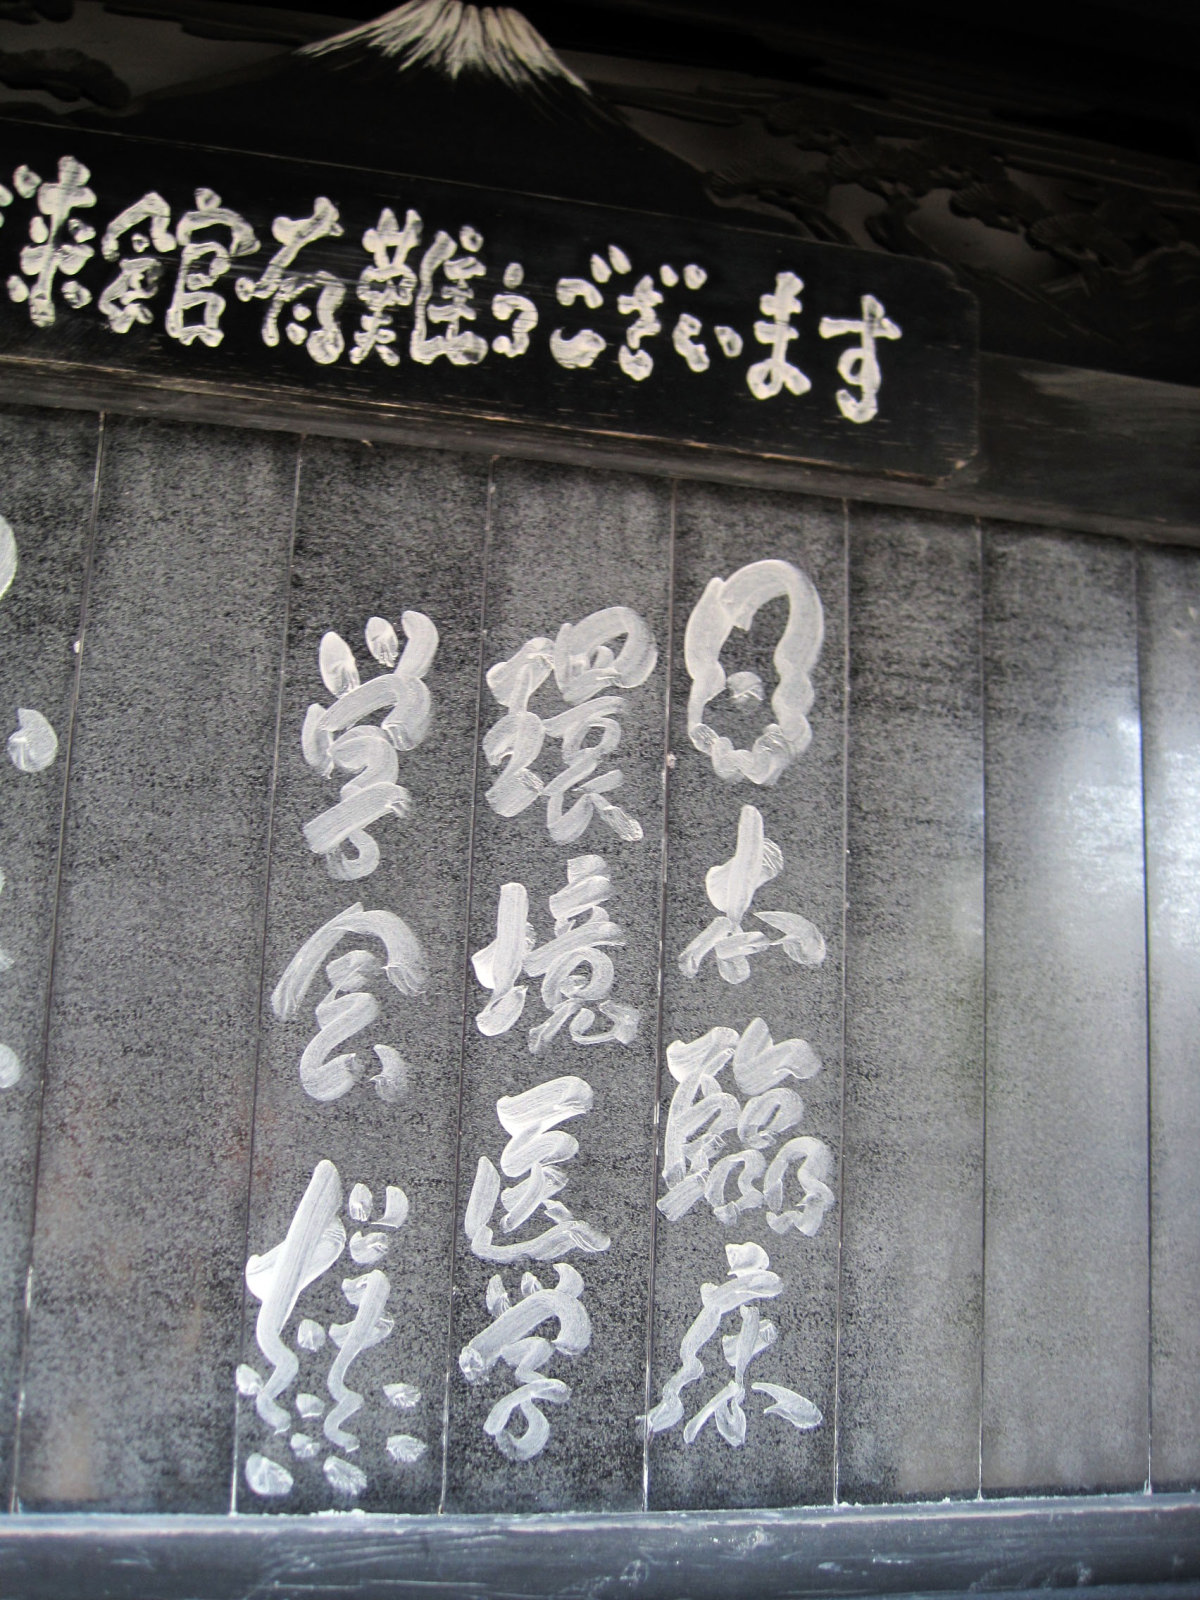 来館有難うございます
日本臨床
環境医学
学会様